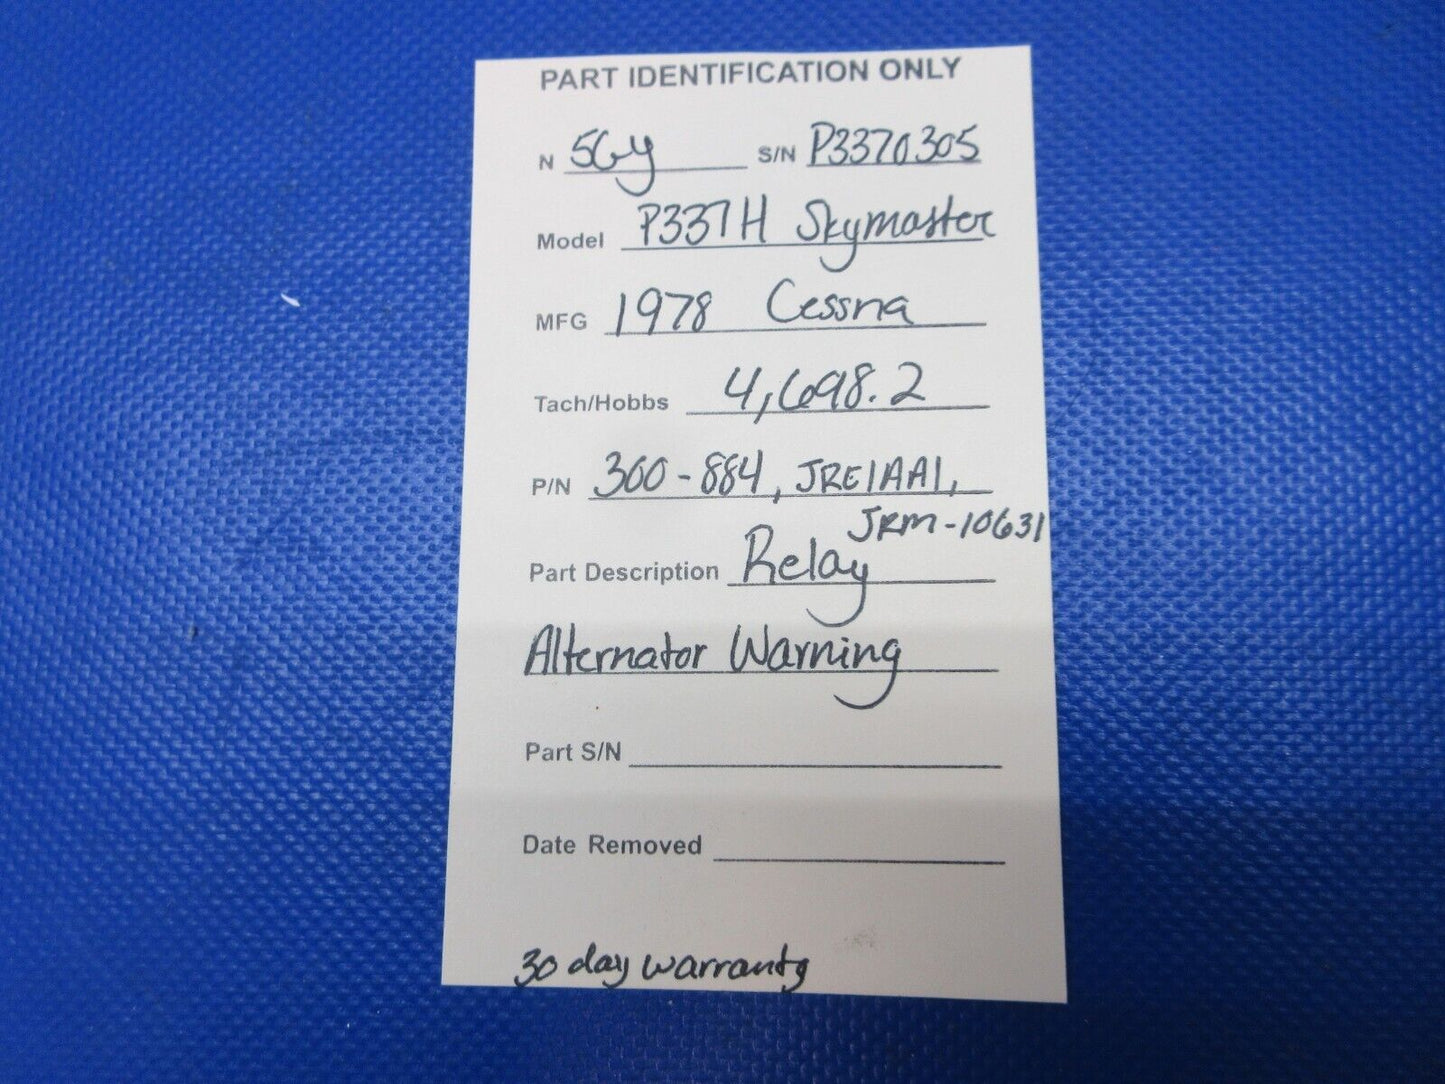 PART IDENTIFICATION ONLY
N 5GY S/N P3370305
Model P337H Skymaster
MFG 1978 Cessna
Tach/Hobbs 4,698.2
P/N 300-884, JRE1AA1,
JRM-10631
Part Description Relay
Alternator Warning
Part S/N
Date Removed
30 day warranty